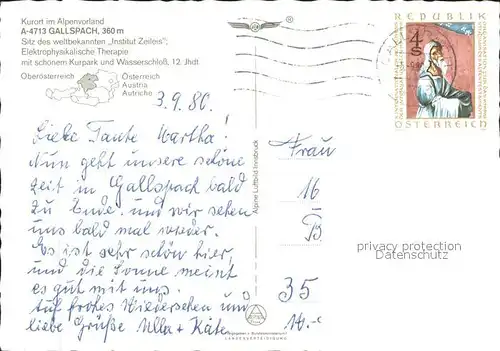 Kurort im Alpenvorland
A-4713 GALLSPACH, 360 m
Sitz des weltbekannten „Institut Zeileis";
Elektrophysikalische Therapie
mit schönem Kurpark und Wasserschloß, 12. Jhdt
Oberösterreich
Österreich
Austria
Autriche
3.9.80.
Liebe Tante Martha!
Nun geht unsere schöne
Zeit in Gallspach bald
zu Ende. und wir sehen
uns bald mal wieder.
Es ist sehr schön hier,
und die Sonne meint
es gut mit uns.
Auf frohes Wiedersehen und
liebe Grüße Ulla + Käte.
Alpine Luftbild Innsbruck
LANDESVERTEIDIGUNG
4
S
ÖSTERREICH
Frau
16
B
privacy protection
Datenschutz
35
14.-